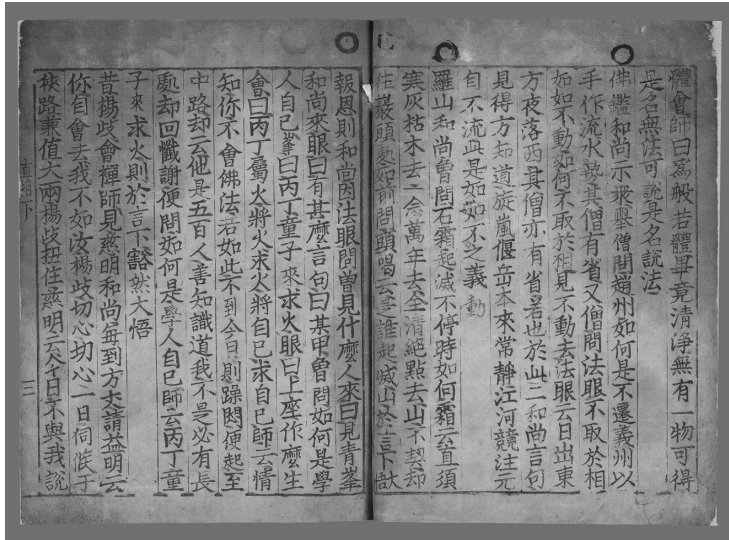 體會師曰爲般若體畢竟清淨無有一物可得
是名無法可說是名說法
佛鑑和尚示衆擧僧問趙州如何是不遷義州以
手作流水勢其僧有省又僧問法眼不取於相
如如不動如何不取於相見不動去法眼云日出東
方夜落西其僧亦有省若也於此二和尚言句
見得方知道旋嵐偃岳本來常靜江河競注元
自不流此是如如不之義動
羅山和尚曾問石霜起滅不停時如何霜云直須
寒灰枯木去一念萬年去全清絕點去山不契却
往巖頭處如前問頭唱云是誰起滅山於言下
報恩則和尚因法眼問曾見什麼人來曰見青峯
和尚來眼曰有甚麼言句曰某甲曾問如何是學
人自己峯曰丙丁童子來求火眼曰上座作麼生
會曰丙丁屬火將火求火將自己求自己師云情
知你不會佛法若如此不到今日則躁悶便起至
中路却云他是五百人善知識道我不是必有長
處却回懺謝便問如何是學人自己師云丙丁童
子來求火則於言下豁然大悟
昔楊歧會禪師見慈明和尚每到方丈請益明云
你自會去我不如汝楊歧切心切心一日伺候于
狹路兼值大雨楊歧扭住慈明云今日不與我說
直指下